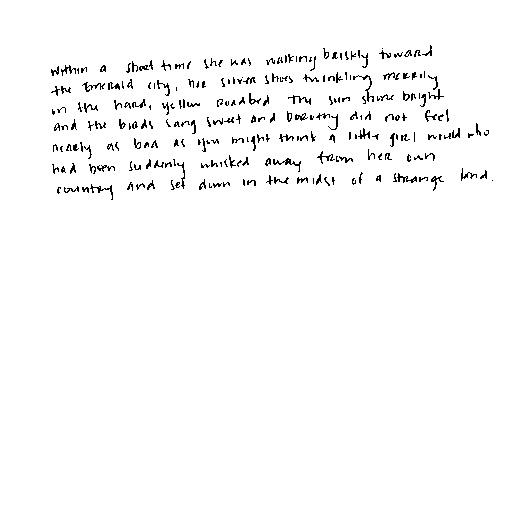 Within a short time she was walking briskly toward
the Emerald City, her silver shoes twinkling merrily
on the hard, yellow roadbed The sun shone bright
and the birds sang sweet and Dorothy did not feel
nearly as bad as you might think a little girl would who
had been suddenly whisked away from her own
country and set down in the midst of a strange land.